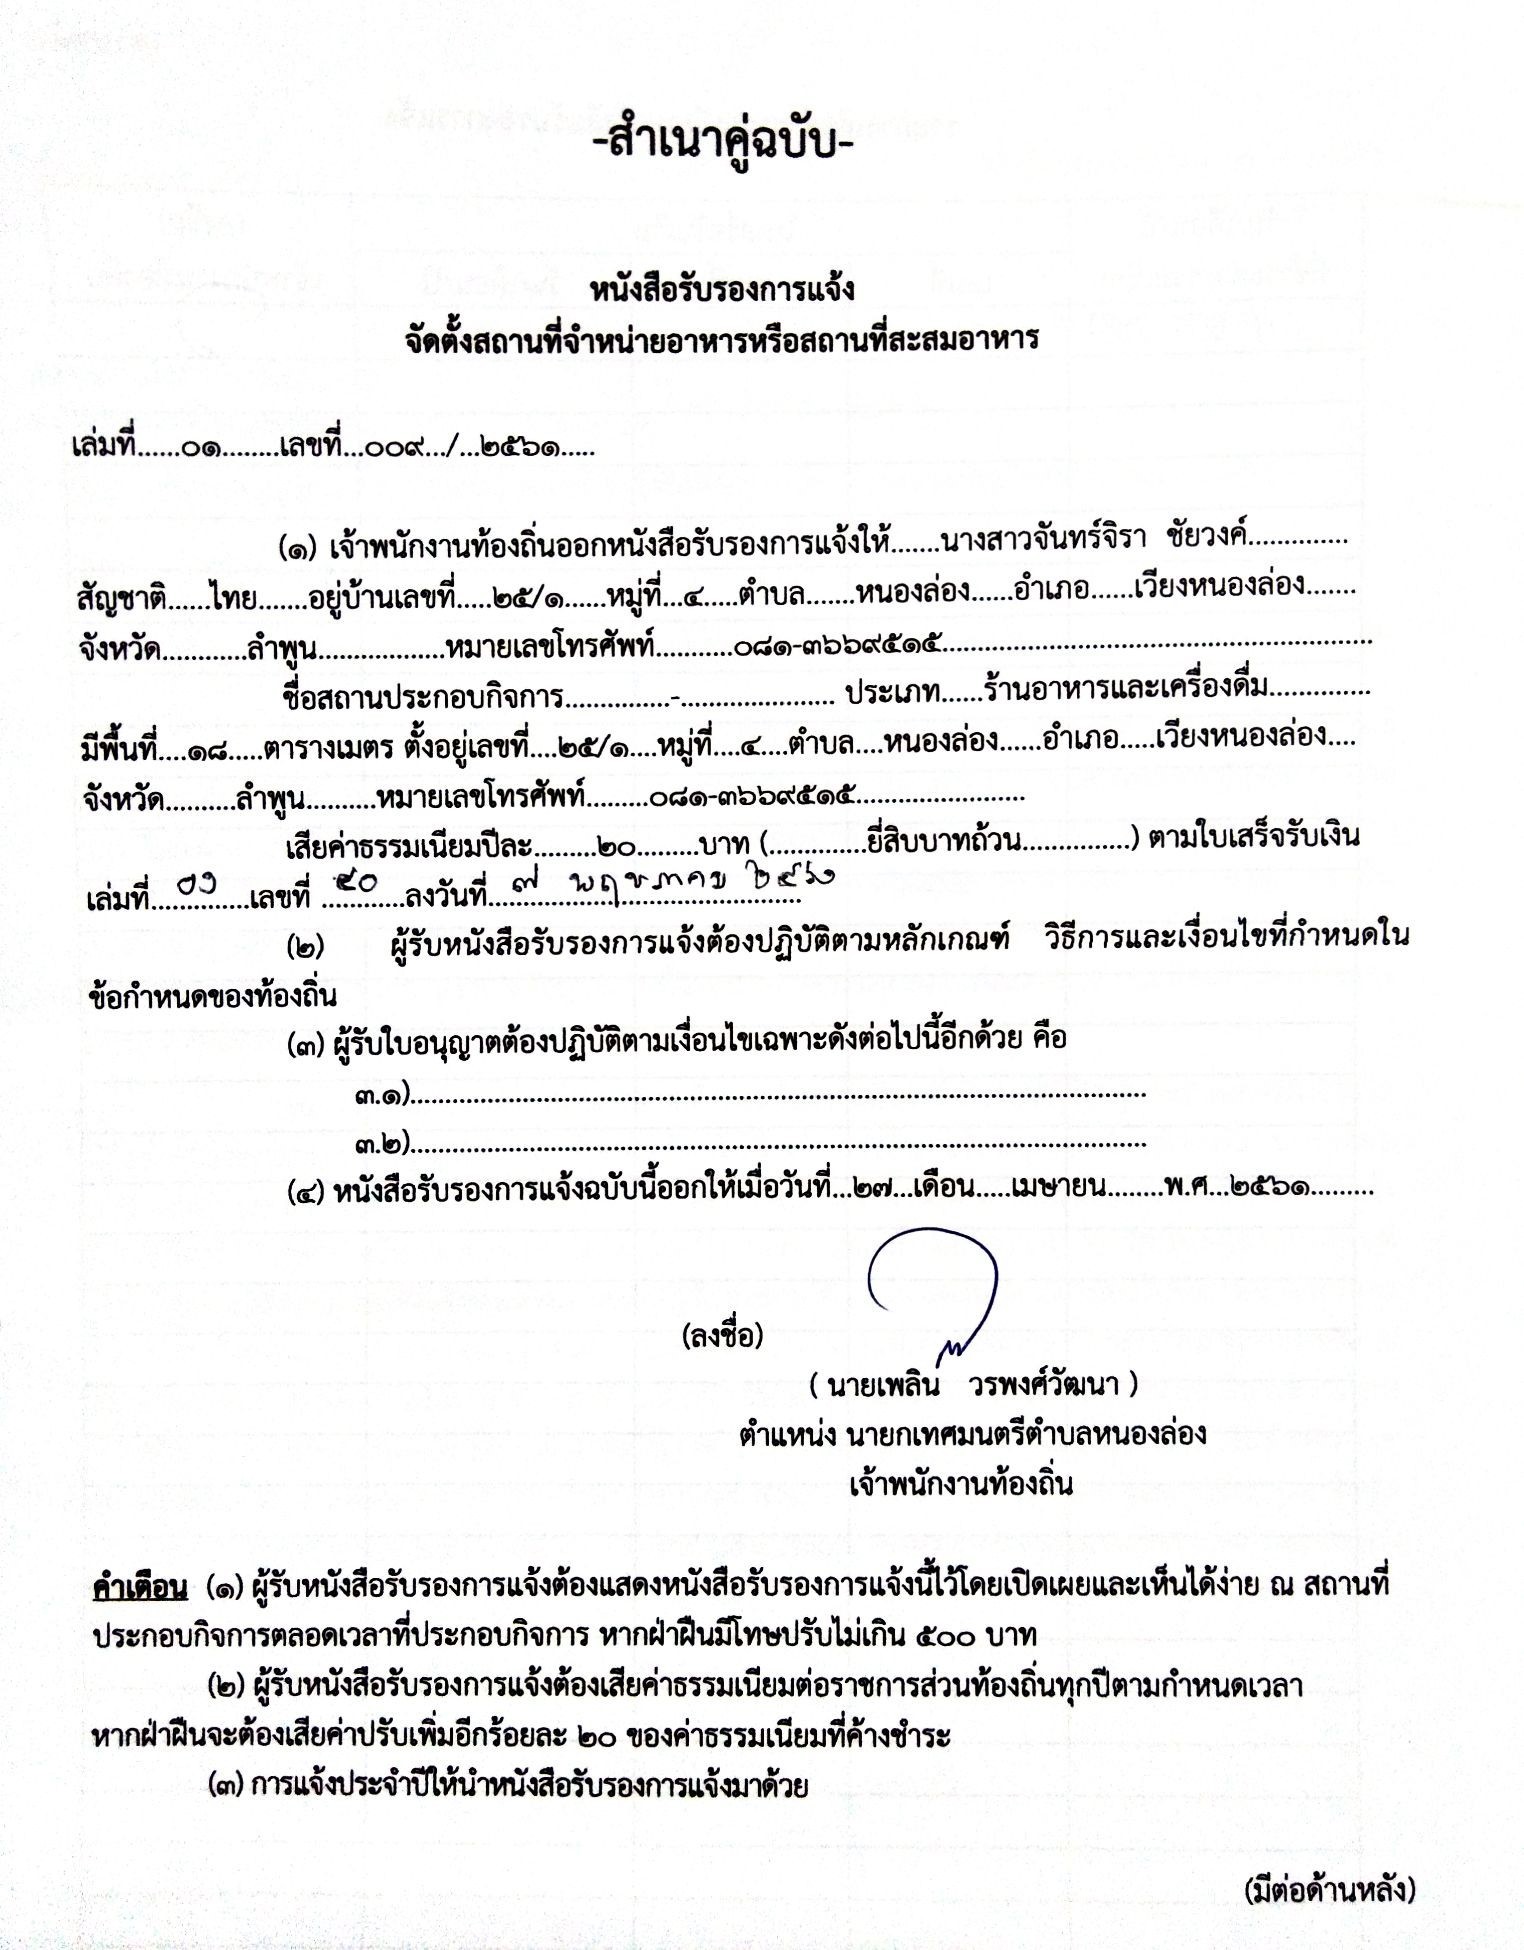 -สำเนาคู่ฉบับ-
หนังสือรับรองการแจ้ง
จัดตั้งสถานที่จำหน่ายอาหารหรือสถานที่สะสมอาหาร
เล่มที่......๐๑........เลขที่...๐๐๙.../...๒๕๖๑.....
(๑) เจ้าพนักงานท้องถิ่นออกหนังสือรับรองการแจ้งให้.......นางสาวจันทร์จิรา ชัยวงค์..............
สัญชาติ......ไทย.......อยู่บ้านเลขที่.....๒๕/๑......หมู่ที่...๔.....ตำบล.......หนองล่อง......อำเภอ......เวียงหนองล่อง.......
จังหวัด............ลำพูน..................หมายเลขโทรศัพท์...........๐๘๑-๓๖๖๙๕๑๕.............................................................
ชื่อสถานประกอบกิจการ...............-...................... ประเภท......ร้านอาหารและเครื่องดื่ม..............
มีพื้นที่....๑๘.....ตารางเมตร ตั้งอยู่เลขที่....๒๕/๑....หมู่ที่....๔....ตำบล....หนองล่อง......อำเภอ.....เวียงหนองล่อง....
จังหวัด..........ลำพูน..........หมายเลขโทรศัพท์.........๐๘๑-๓๖๖๙๕๑๕........................
เสียค่าธรรมเนียมปีละ.........๒๐.........บาท (..............ยี่สิบบาทถ้วน...............) ตามใบเสร็จรับเงิน
เล่มที่..............เลขที่ ๔๐ ลงวันที่ ๗ พฤษภาคม ๒๕๖๑
(๒) ผู้รับหนังสือรับรองการแจ้งต้องปฏิบัติตามหลักเกณฑ์ วิธีการและเงื่อนไขที่กำหนดใน
ข้อกำหนดของท้องถิ่น
(๓) ผู้รับใบอนุญาตต้องปฏิบัติตามเงื่อนไขเฉพาะดังต่อไปนี้อีกด้วย คือ
๓.๑).........................................................................................................
๓.๒).........................................................................................................
(๔) หนังสือรับรองการแจ้งฉบับนี้ออกให้เมื่อวันที่...๒๗...เดือน.....เมษายน........พ.ศ...๒๕๖๑.........
(ลงชื่อ)
( นายเพลิน วรพงศ์วัฒนา )
ตำแหน่ง นายกเทศมนตรีตำบลหนองล่อง
เจ้าพนักงานท้องถิ่น
คำเตือน (๑) ผู้รับหนังสือรับรองการแจ้งต้องแสดงหนังสือรับรองการแจ้งนี้ไว้โดยเปิดเผยและเห็นได้ง่าย ณ สถานที่
ประกอบกิจการตลอดเวลาที่ประกอบกิจการ หากฝ่าฝืนมีโทษปรับไม่เกิน ๕๐๐ บาท
(๒) ผู้รับหนังสือรับรองการแจ้งต้องเสียค่าธรรมเนียมต่อราชการส่วนท้องถิ่นทุกปีตามกำหนดเวลา
หากฝ่าฝืนจะต้องเสียค่าปรับเพิ่มอีกร้อยละ ๒๐ ของค่าธรรมเนียมที่ค้างชำระ
(๓) การแจ้งประจำปีให้นำหนังสือรับรองการแจ้งมาด้วย
(มีต่อด้านหลัง)